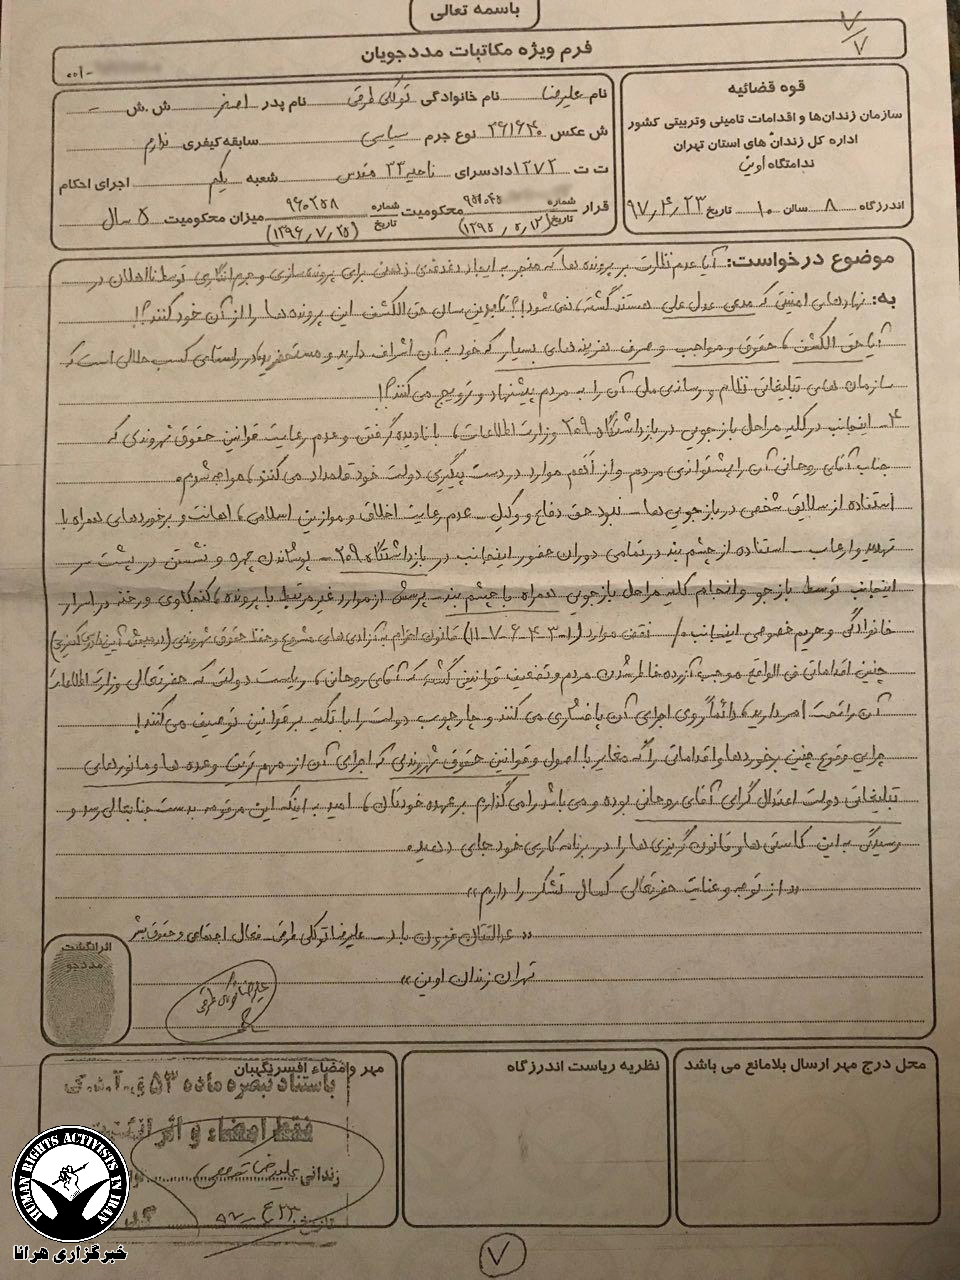 باسمه تعالی
۷/۷
فرم ویژه مکاتبات مددجویان
قوه قضائیه
سازمان زندان‌ها و اقدامات تامینی وتربیتی کشور
اداره کل زندان های استان تهران
ندامتگاه اوین
اندرزگاه ۸ سالن ۱۰ تاریخ ۹۷٫۴٫۲۳
نام علیرضا نام خانوادگی توکلی طرقی نام پدر اصغر ش.ش
ش عکس ۲۶۱۶۴۰ نوع جرم سیاسی سابقه کیفری ندارم
ت ت ۱۲۷۲ دادسرای ناحیه ۳۳ مقدس شعبه یکم اجرای احکام
قرار شماره تاریخ (۱۳۹۵٫۵٫۱۲) محکومیت شماره ۹۶۰۲۵۸ تاریخ (۱۳۹۶٫۷٫۲۵) میزان محکومیت ۵ سال
موضوع درخواست: آیا عدم نظارت بر پرونده ها که منجر به ایجاد برای پرونده سازی و جرم انگاری توسط نااهلان در
به: نهادهای امنیتی که مدعی عدل علی هستند گشته، نمی شود!؟ تا بدین سان حق الکشف این پرونده ها را از آن خود کنند؟!
آیا حق الکشف، حقوق و مواجب و صرف هزینه های بسیار که خود به آن اشراف دارید و مستحضرید در راستای کسب حلالی است که
سازمان های تبلیغاتی نظام و رسانه‌ی ملی آن را به مردم پیشنهاد و ترویج می کنند؟!
۴- اینجانب در کلیه مراحل بازجویی در بازداشتگاه ۲۰۹ وزارت اطلاعات، با نادیده گرفتن و عدم رعایت قوانین حقوق شهروندی که
جناب آقای روحانی آن را پشتوانه‌ی مردم و از اَهَم موارد در دست پیگیری دولت خود قلمداد می کنند، مواجه شدم.
استفاده از سلایق شخصی در بازجویی ها - نبود حق دفاع و وکیل - عدم رعایت اخلاق و موازین اسلامی، اهانت و برخوردهای همراه با
تهدید و ارعاب - استفاده از چشم بند در تمامی دوران حضور اینجانب در بازداشتگاه ۲۰۹ - پوشاندن چهره و نشستن در پشت سر
اینجانب توسط بازجو و انجام کلیه مراحل بازجویی همراه با چشم بند - پرسش از موارد غیر مرتبط با پرونده، کنجکاوی و رخنه در اسرار
خانوادگی و حریم خصوصی اینجانب و/ نقض موارد (۱-۳-۴-۶-۷-۱۱) قانون احترام به آزادی های مشروع و حفظ حقوق شهروندی
چنین اقداماتی فی الواقع موجب آزرده خاطر شدن مردم و تضعیف قوانینی گشته که آقای روحانی، ریاست دولتی که حضرتعالی وزارت اطلاعات
آن را تحت امر دارید، دائماً روی اجرای آن پافشاری می کنند و چارچوب دولت را با تکیه بر قوانین توصیف می کنند!
چرایی وقوع چنین برخوردها و اقداماتی را که مغایر با اصول و قوانین حقوق شهروندی که اجرای آن از مهم ترین وعده ها و مانورهای
تبلیغاتی دولت اعتدال گرای آقای روحانی بوده و می باشد را می گذارم بر عهده خودتان، امید به اینکه این مرقومه بدست جنابعالی رسد و
رسیدگی به این کاستی ها و قانون گریزی ها را در برنامه کاری خود جای دهید.
«از توجه و عنایت حضرتعالی کمال تشکر را دارم»
«عدالتتان فزون باد - علیرضا توکلی طرقی - فعال اجتماعی و حقوق بشر
تهران زندان اوین»
اثر انگشت
مددجو
علیرضا توکلی طرقی
محل درج مهر ارسال بلامانع می باشد
نظریه ریاست اندرزگاه
مهر وامضاء افسرنگهبان
باستناد تبصره ماده ۵۳
فقط امضاء و اثر انگشت
زندانی علیرضا
تاریخ
HUMAN RIGHTS ACTIVISTS IN IRAN
خبرگزاری هرانا
۷